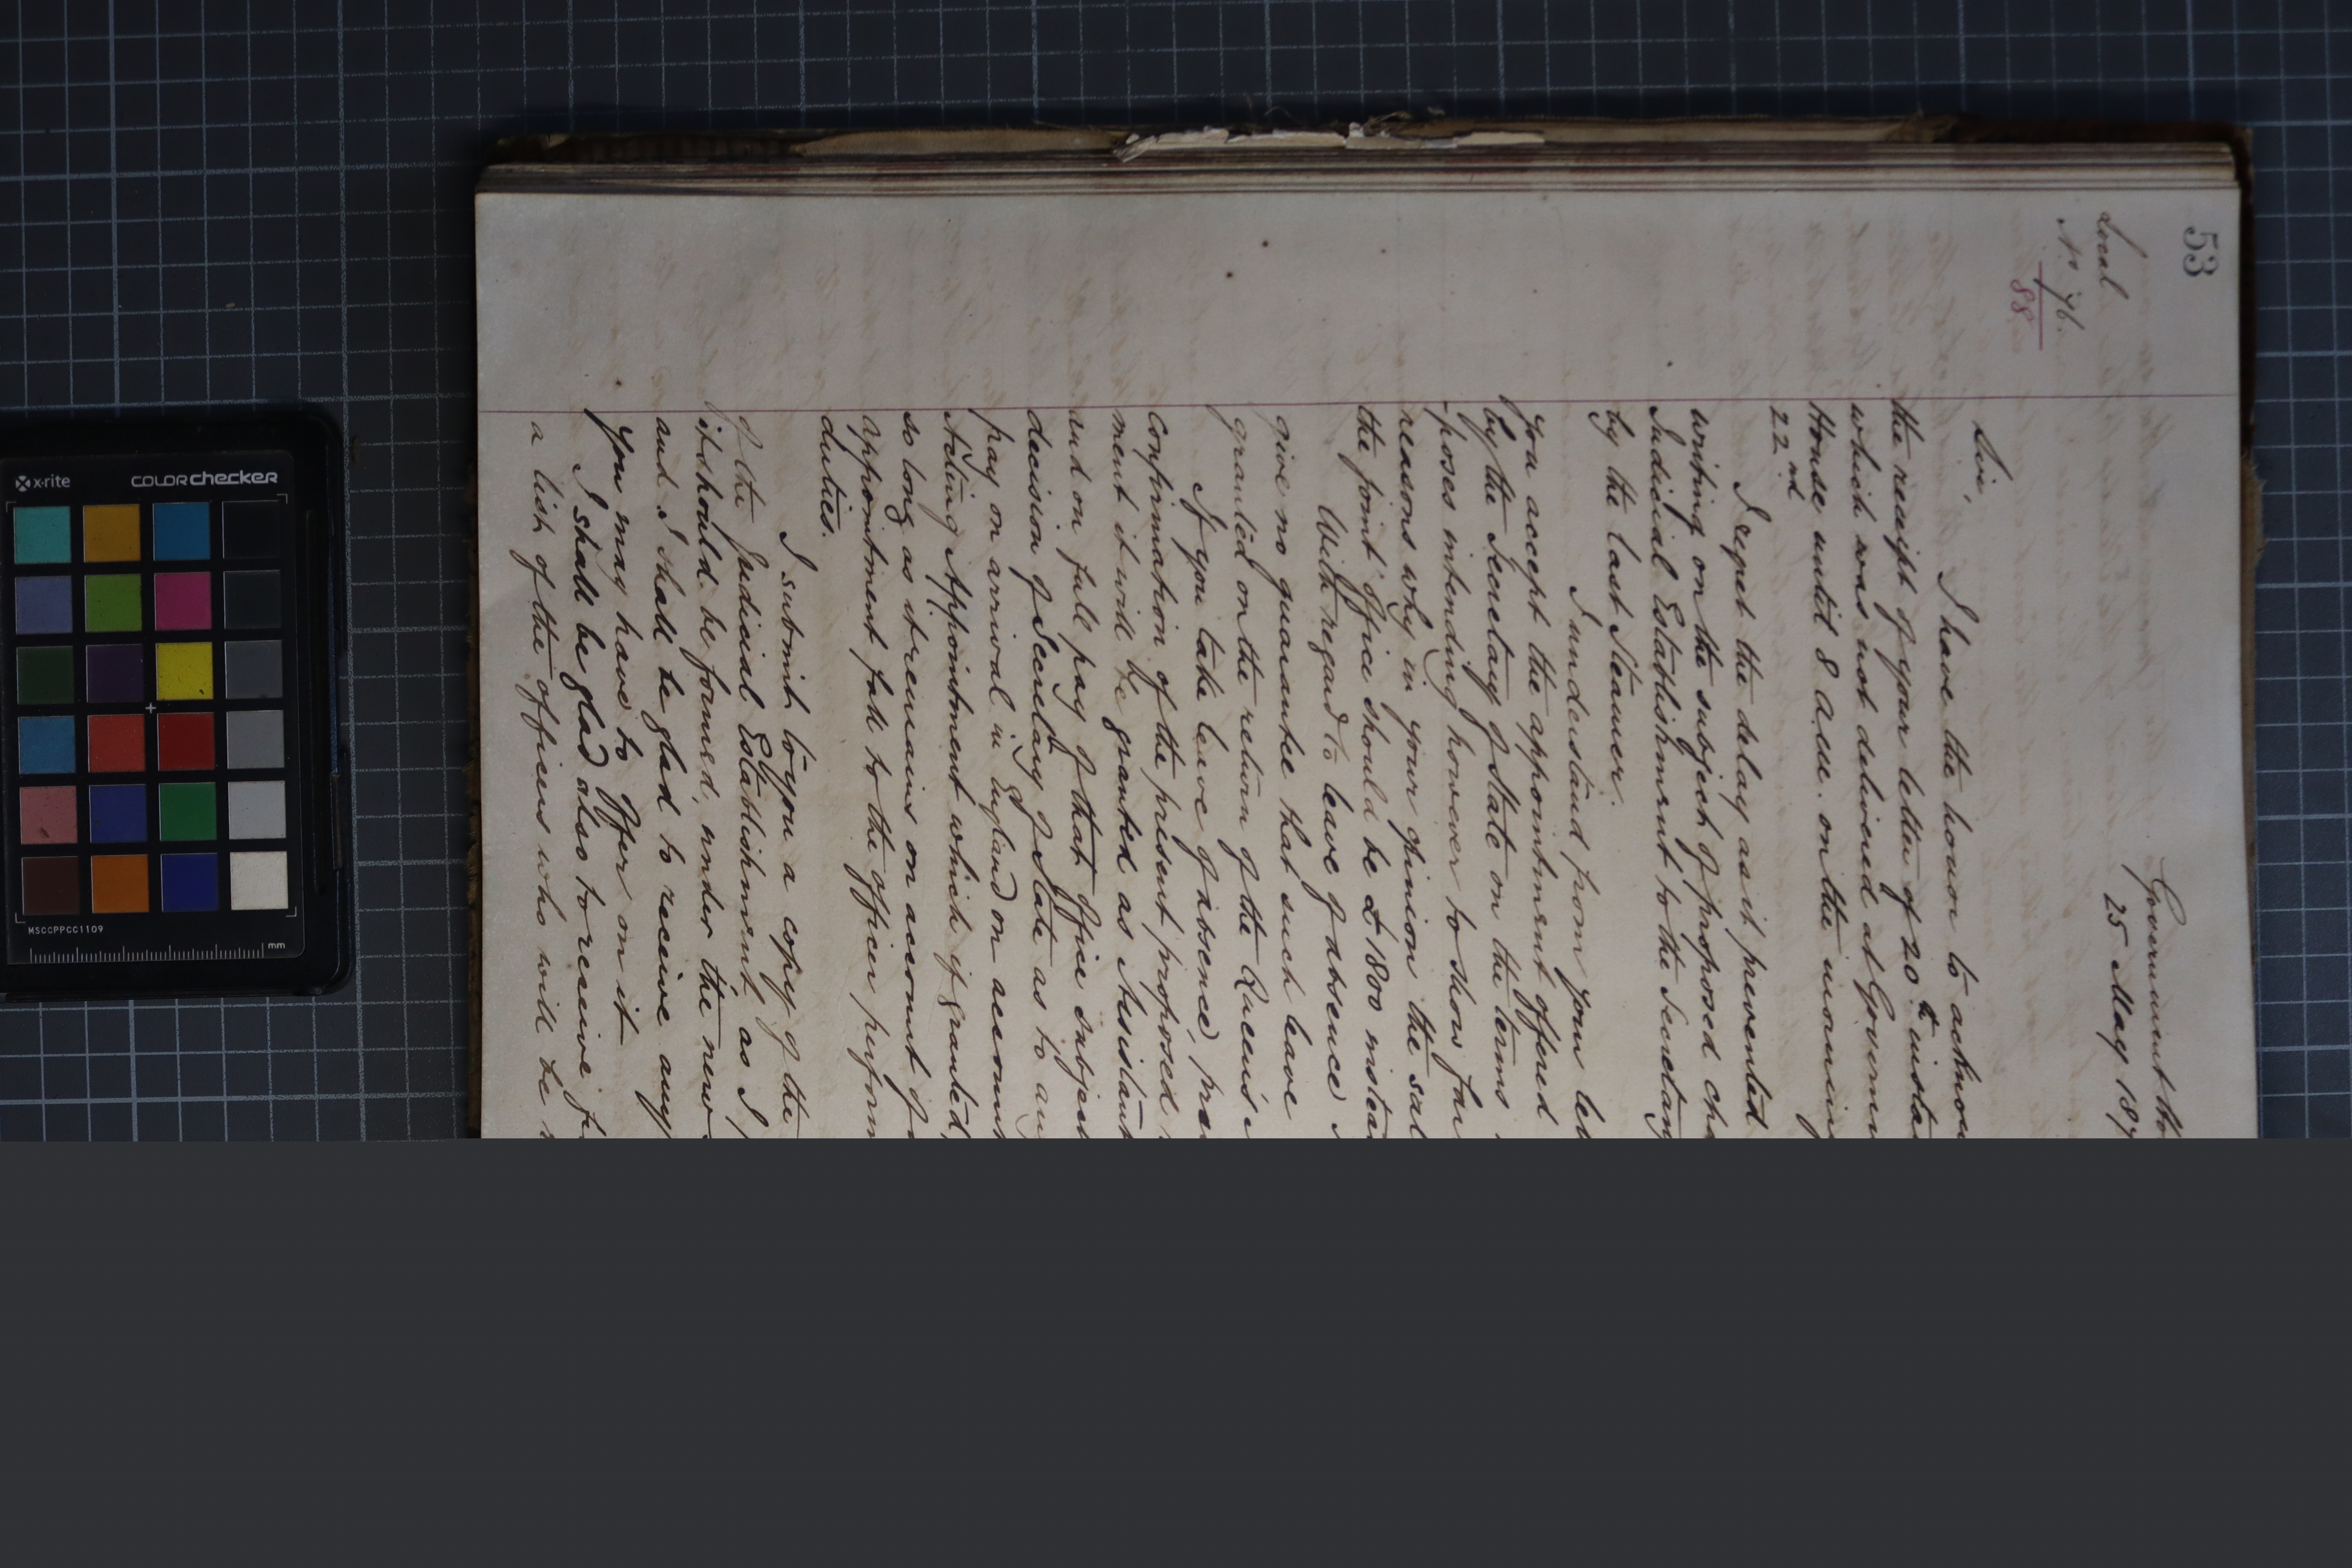 53
Local
No 76.
88
Government Ho
25 May 187
Sir,
I have the honor to acknow
the receipt of your letter of 20th insta
which was not delivered at Governm
House until 8 a.m. on the morning
22nd
I regret the delay as it prevented
writing on the subject of proposed cha
Judicial Establishment to the Secretary
by the last Steamer.
I understand from your let
you accept the appointment offered
by the Secretary of State on the terms
-poses intending however to show fur
reasons why in your opinion the sal
the joint office should be £1800 instea
With regard to leave of absence
give no guarantee that such leave
granted on the return of the Queen's
If you take leave of absence, pre
confirmation of the present proposed
ment it will be granted as Assistant
and on full pay of that office subject
decision of Secretary of State as to any
pay on arrival in England on account
Acting Appointment which if granted,
so long as it remains on account of
appointment fall to the officer perform
duties.
I submit to you a copy of the
of the Judicial Establishment, as I
it should be formed, under the new
and I shall be glad to receive any
you may have to offer on it
I shall be glad also to receive fr
a list of the officers who will be
x-rite
colorchecker
MSCCPPCC1109
mm